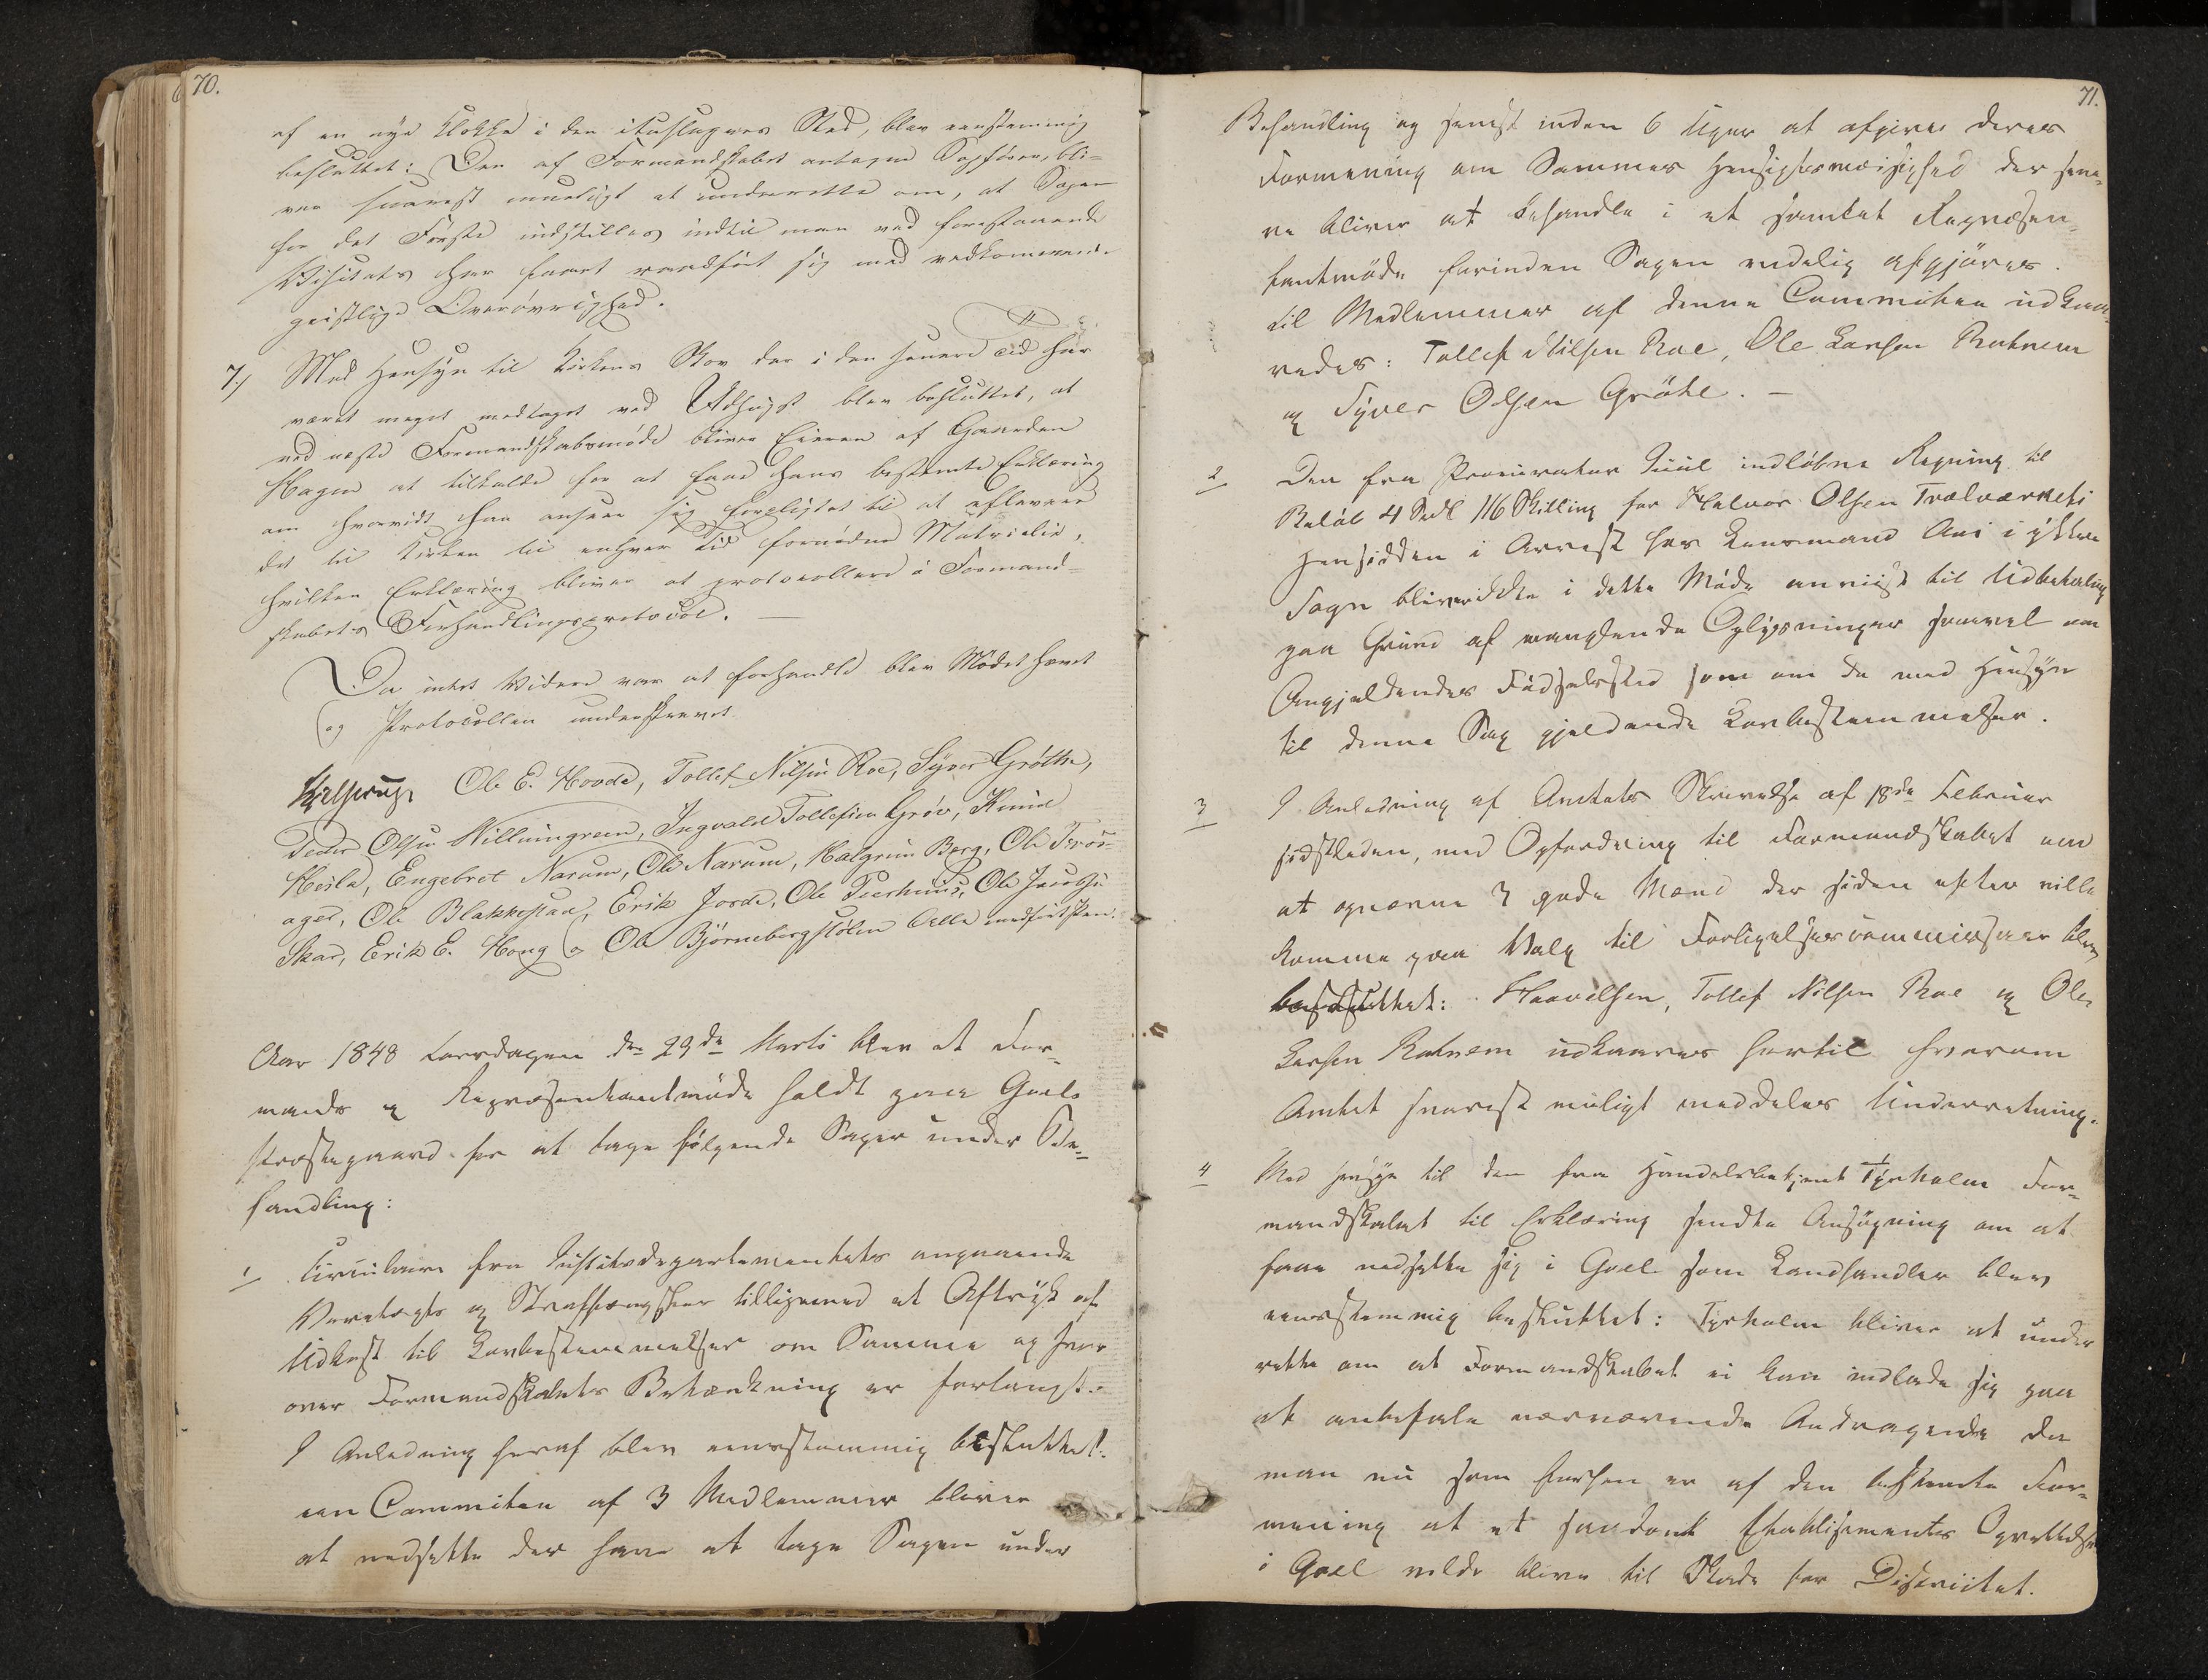 70.
af en nye Klokke i den itaslagnes Sted, blev eenstemmig
besluttet: Den af Formandskabet antagne Sagförer, bli-
ver snarest mueligt at underrette om, at Sagen
for det Förste indstilles indtil man ved forestaaende
Visitats har faaet raadfört sig med vedkommende
geistlige Overövrighed.
7./ Med Hensyn til Kirkens Skov der i den senere Tid har
været meget medtaget ved Udhugst blev besluttet, at
ved næste Formandskabsmöde bliver Eieren af Gaarden
Hagen at tilkalde for at faae hans bestemte Erklæring
om hvorvidt han anseer sig forpligtet til at aflevere
det til Kirken til enhver Tid fornödne Materialie,
hvilken Erklæring bliver at protocollere i Formand-
skabets Forhandlingsprotocol.
Da intet Videre var at forhandle blev Mödet hævet
og Protocollen underskrevet
Kjelstrup, Ole E. Hovde, Tollef Nilsen Roe, Syver Gröthe,
Peder Olsen Villumgreen, Ingvald Tollefsen Gröv,
Engebret Narum, Ole Narum, Halgrim Berg, Ole
ager, Ole Blakkestad, Erik Jorde, Ole Ole Jacobsen
Skar, Erik E. Hong og Ole Björnebergstölen Alle med fört Pen.
Aar 1848 Torsdagen den 29de Marts blev et For-
mands og Repræsentantmöde holdt paa Goels
Præstegaard for at tage fölgende Sager under Be-
handling:
1 Circulaire fra Justitsdepartementets angaaende
Varetægts og Straffængsler tilligemed et Aftryk af
Udkast til Lovbestemmelser om Samme og hvor
over Formandskabets Betænkning er forlangt.
I Anledning heraf blev eensstemmig besluttet:
een Committee af 3 Medlemmer bliver
at nedsætte der have at tage Sagen under
71.
Behandling og senest inden 6 Uger at afgive deres
Formening om Sammes Hensigtsmæssighed der sene-
re bliver at behandle i et samlet Repræsen-
tantmöde forinden Sagen endelig afgjöres.
til Medlemmer af denne Committee udkaa-
redes: Tollef Nilsen Roe, Ole Larsen Rotneim
og Syver Olsen Gröte. -
2 Den fra Procurator Juul indlöbne Regning til
Belöb 4 Spdl 116 Skilling for Halvor Olsen Trælværkets
Hensidden i Arrest hos Lensmand
Sogn bliver ikke i dette Möde anviist til Udbetaling
paa Grund af manglende Oplysninger saavel om
Angjældendes Födselssted som om de med Hensyn
til denne Sag gjeldende Lovbestemmelser.
3 I Anledning af Amtets Skrivelse af 18de Februar
sidstleden, med Opfordring til Formandskabet om
at opnævne 3 gode Mænd der siden efter ville
komme paa Valg til Forligelsescommissair blev
besluttet: Haavelsen, Tollef Nilsen Roe og Ole
Larsen Rotnem udkaares hertil hvorom
Amtet snarest muligt meddeles Underretning.
4 Med Hensyn til den fra Handelsbetjent Tyrholm For-
mandskabet til Erklæring sendte Ansögning om at
faae nedsætte sig i Goel som Landhandler blev
eensstemmig besluttet: Tyrholm bliver at under
rette om at Formandskabet ei kan indlade sig paa
at anbefale nærværende Andragende da
man nu som forhen er af den bestemte For-
mening at et saadant Etablisements Oprettelse
i Goel vilde blive til Skade for Districtet.